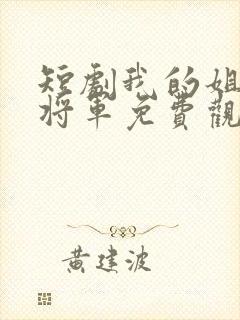 短劇我的姐
將軍免費觀
黃建波